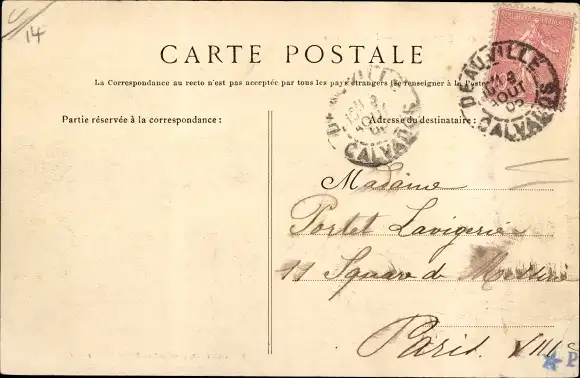 14
CARTE POSTALE
La Correspondance au recto n'est pas acceptée par tous les pays étrangers (se renseigner à la Poste
Partie réservée à la correspondance :
Adresse du destinataire :
DEAUVILLE
AOUT
CALVADOS
DEAUVILLE
AOUT
CALVADOS
Madame
Portet Lavigerie
11 Square de
Paris. VIII